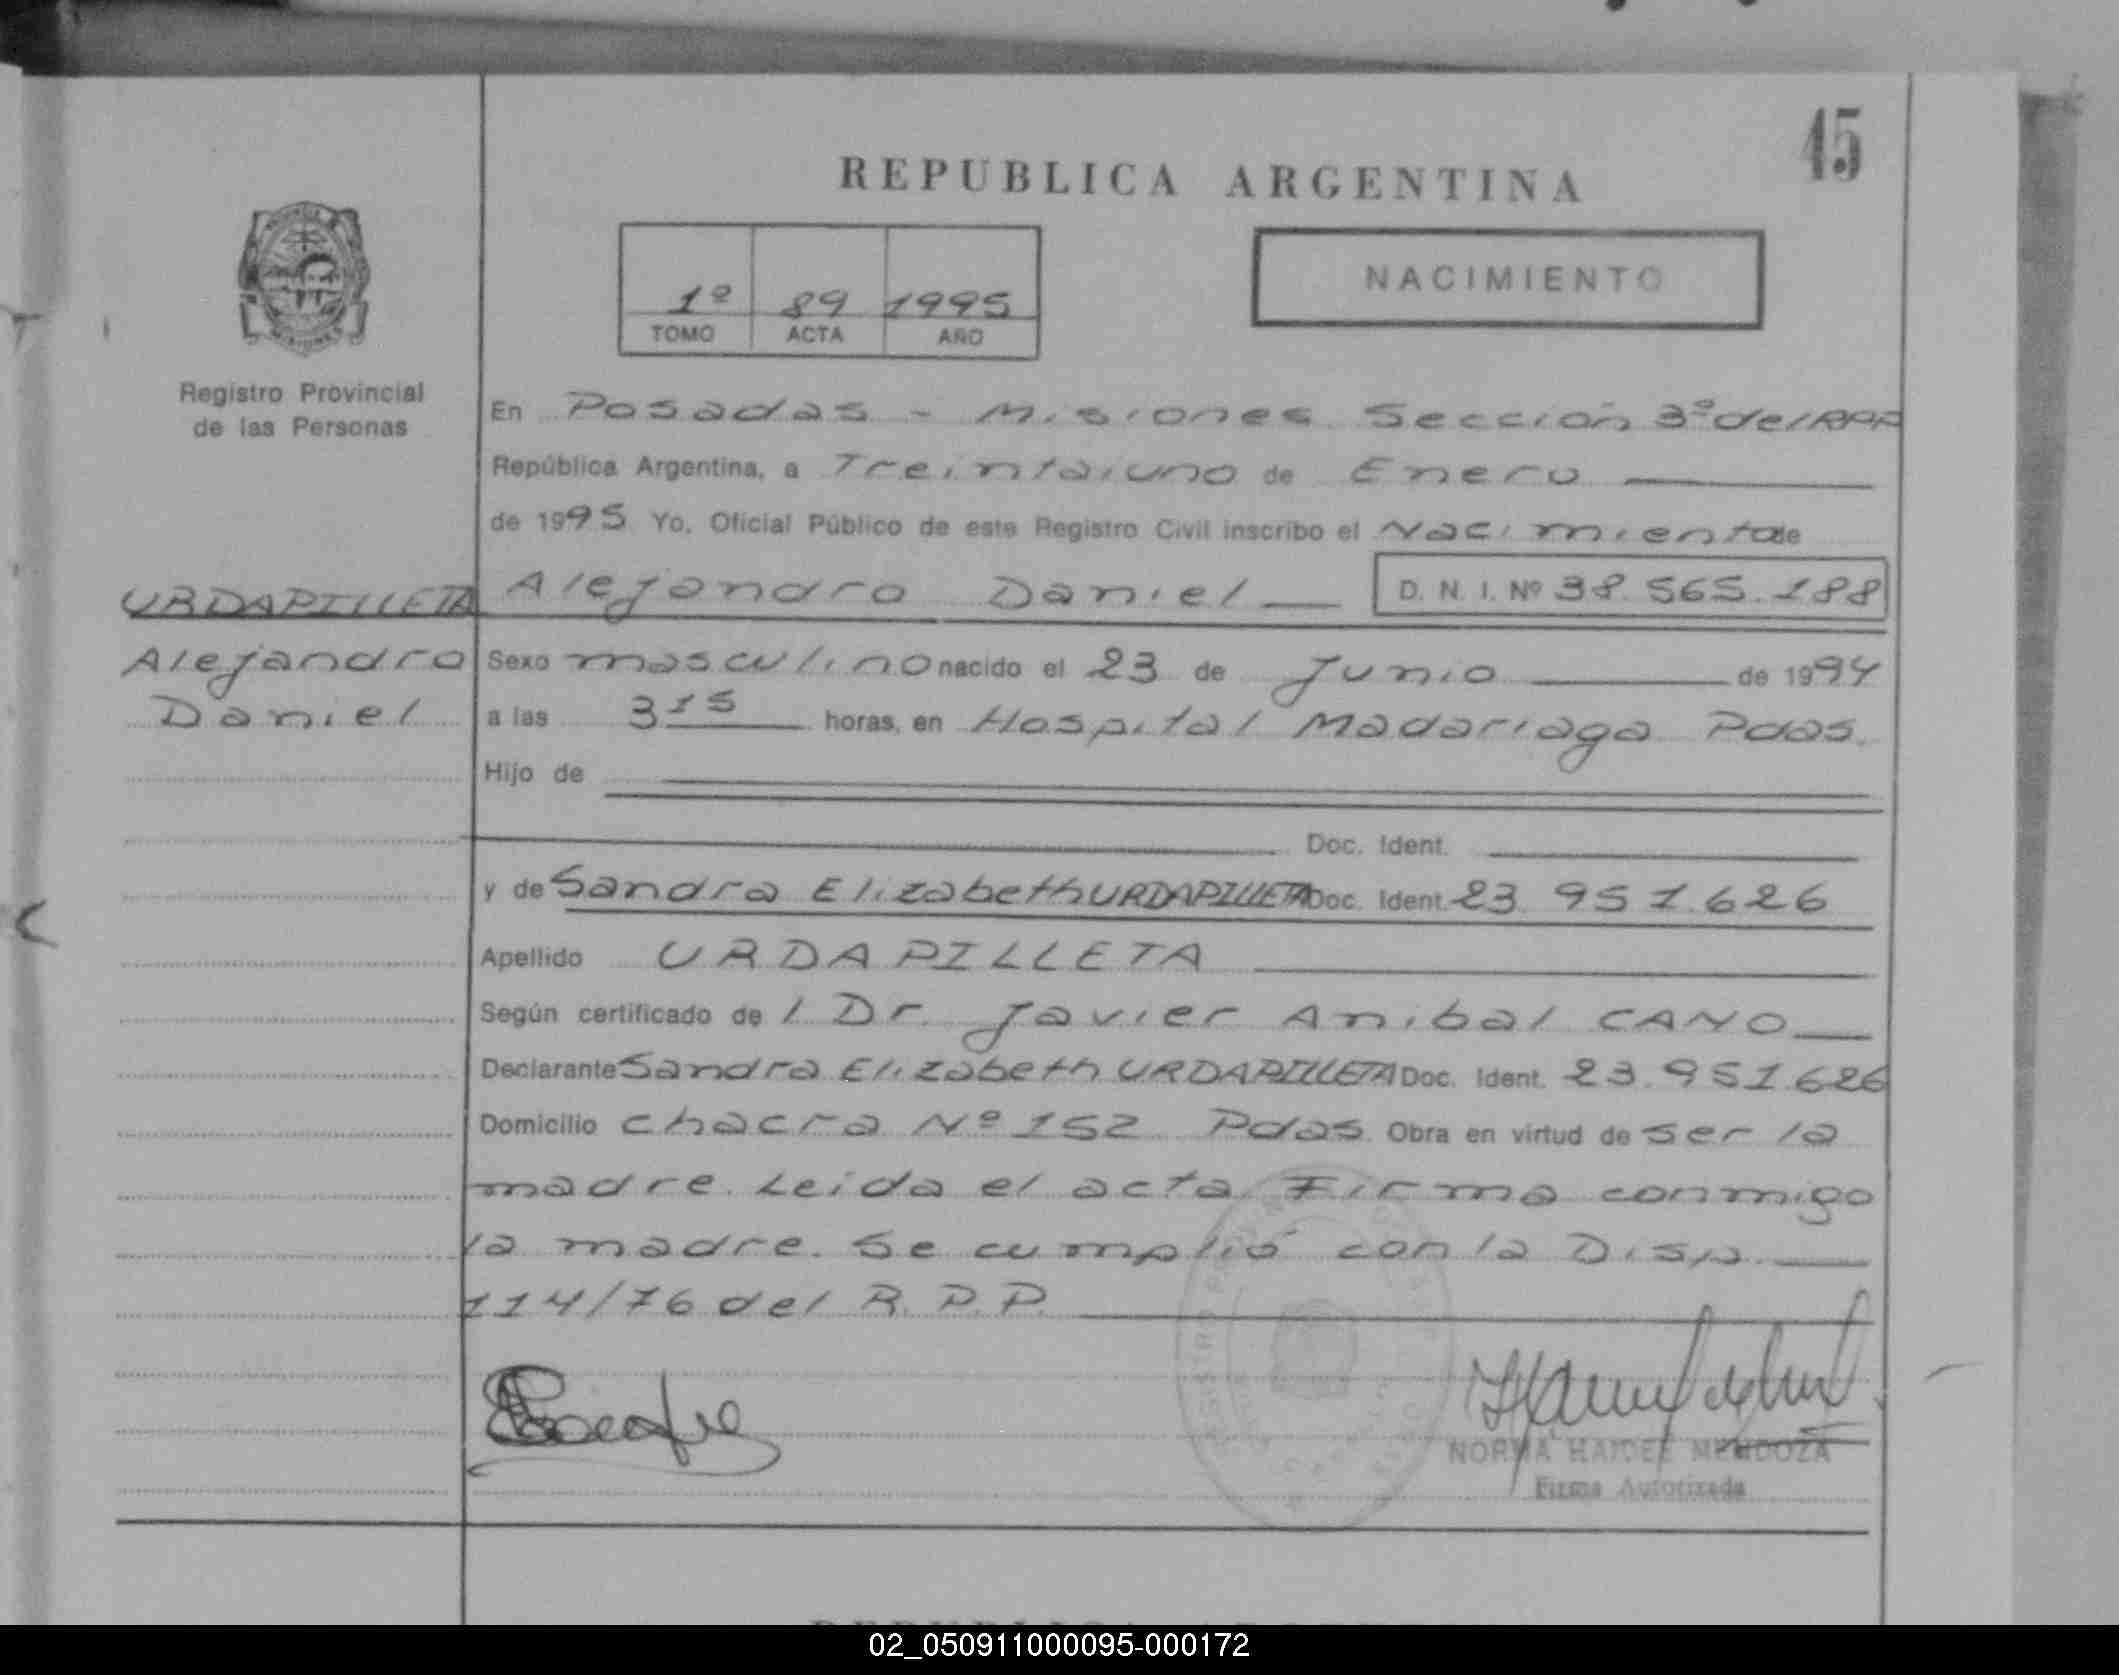 45
REPUBLICA ARGENTINA
1º 89 1995
TOMO ACTA AÑO
NACIMIENTO
MISIONES
Registro Provincial
de las Personas
En Posadas - Misiones Sección 3º del RPP
República Argentina, a Treintaiuno de Enero
de 1995 Yo, Oficial Público de este Registro Civil inscribo el Nacimiento de
URDAPILLETA
Alejandro
Daniel
Alejandro Daniel D. N. I. Nº 38.565.188
Sexo masculino nacido el 23 de Junio de 1994
a las 3 15 horas, en Hospital Madariaga Pdas.
Hijo de
Doc. Ident.
y de Sandra Elizabeth URDAPILLETA Doc. Ident. 23.951.626
Apellido URDAPILLETA
Según certificado de l Dr. Javier Anibal CANO
Declarante Sandra Elizabeth URDAPILLETA Doc. Ident. 23.951.626
Domicilio chacra Nº 152 Pdas. Obra en virtud de ser la
madre. Leida el acta Firma conmigo
la madre. Se cumplió con la Disp.
114/76 del R. P. P.
NORMA HAIDEE MENDOZA
Firma Autorizada
02_050911000095-000172